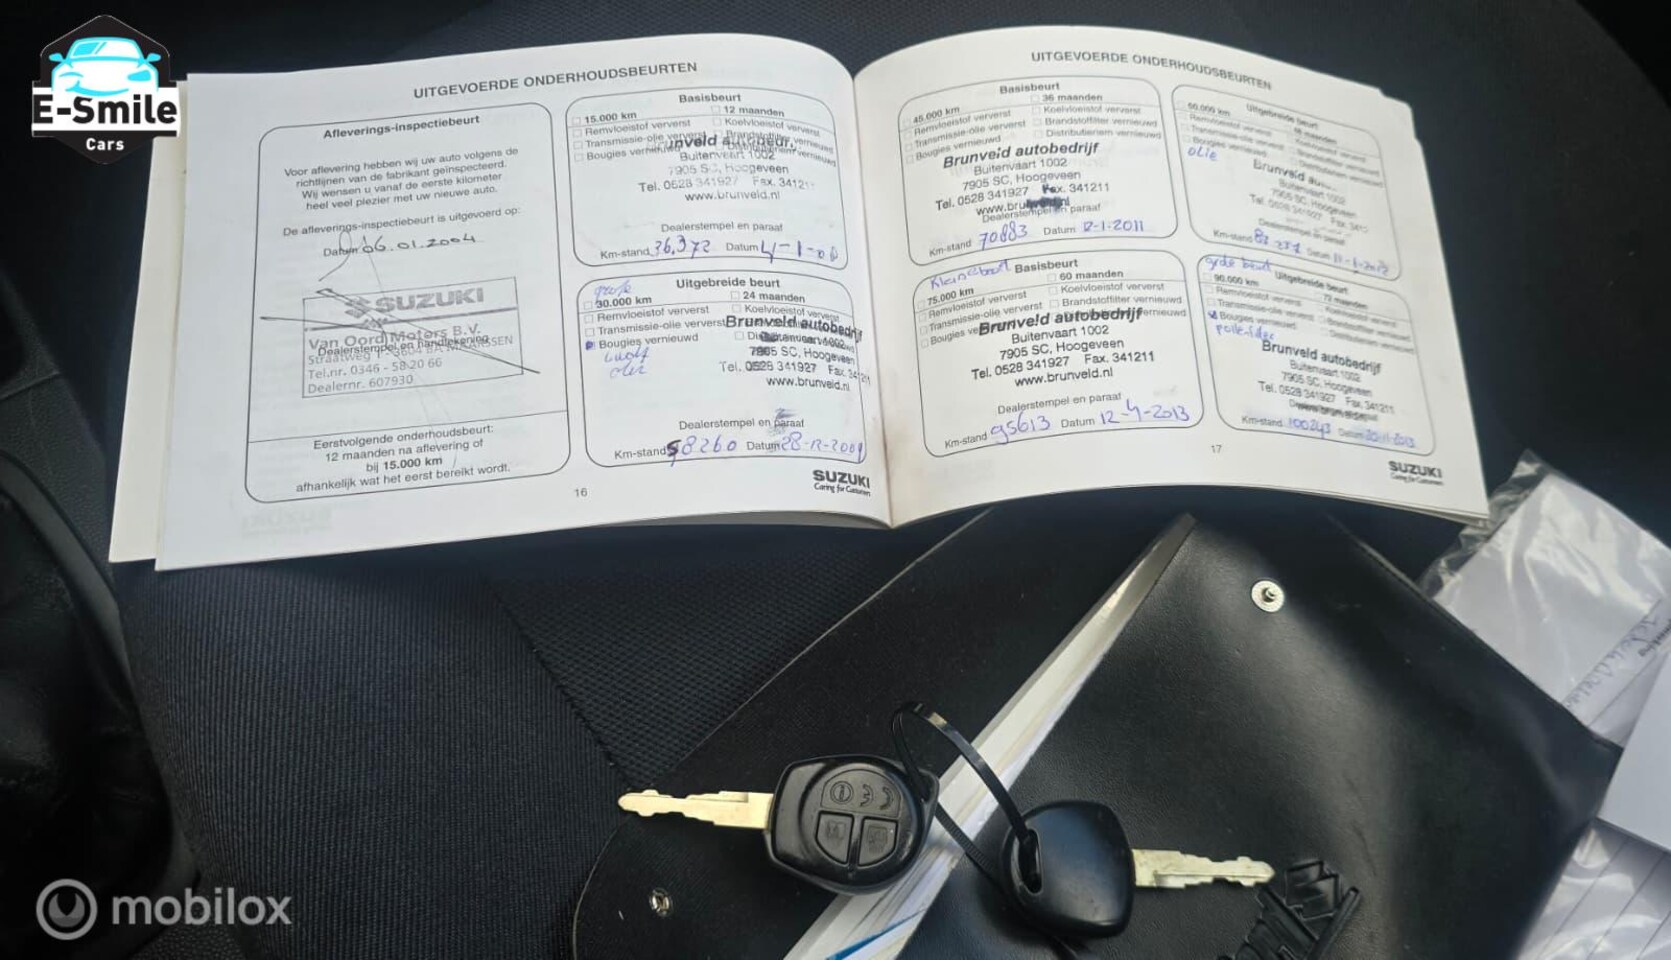 E-Smile
Cars
UITGEVOERDE ONDERHOUDSBEURTEN
Afleverings-inspectiebeurt
Voor aflevering hebben wij uw auto volgens de
richtlijnen van de fabrikant geïnspecteerd.
Wij wensen u vanaf de eerste kilometer
heel veel plezier met uw nieuwe auto.
De afleverings-inspectiebeurt is uitgevoerd op:
Datum 06.01.2004
SUZUKI
Van Oord Motors B.V.
Dealerstempel en handtekening
Straatweg
Tel.nr. 0346 - 58 20 66
Dealernr. 607930
Eerstvolgende onderhoudsbeurt:
12 maanden na aflevering of
bij 15.000 km
afhankelijk wat het eerst bereikt wordt.
Basisbeurt
15.000 km 12 maanden
Remvloeistof ververst Koelvloeistof ververst
Transmissie-olie ververst Brandstoffilter vernieuwd
Bougies vernieuwd
Buitenvaart 1002
7905 SC, Hoogeveen
Tel. 0528 341927 Fax.
www.brunveld.nl
Dealerstempel en paraaf
Km-stand 36,372 Datum
Uitgebreide beurt
30.000 km 24 maanden
Remvloeistof ververst Koelvloeistof ververst
Transmissie-olie ververst
Bougies vernieuwd
Brunveld autobedrijf
7905 SC, Hoogeveen
Tel. 0528 341927 Fax.
www.brunveld.nl
Dealerstempel en paraaf
Km-stand 58260 Datum 28-12-2009
SUZUKI
Caring for Customers
16
UITGEVOERDE ONDERHOUDSBEURTEN
Basisbeurt
45.000 km 36 maanden
Remvloeistof ververst Koelvloeistof ververst
Transmissie-olie ververst Brandstoffilter vernieuwd
Bougies vernieuwd Distributieriem vernieuwd
Brunveld autobedrijf
Buitenvaart 1002
7905 SC, Hoogeveen
Tel. 0528 341927 Fax. 341211
Dealerstempel en paraaf
Km-stand 70883 Datum 12-1-2011
Basisbeurt
75.000 km 60 maanden
Remvloeistof ververst Koelvloeistof ververst
Transmissie-olie ververst Brandstoffilter vernieuwd
Brunveld autobedrijf
Buitenvaart 1002
7905 SC, Hoogeveen
Tel. 0528 341927 Fax. 341211
www.brunveld.nl
Dealerstempel en paraaf
Km-stand 95613 Datum 12-4-2013
Uitgebreide beurt
60.000 km
Remvloeistof ververst
Transmissie-olie ververst
Bougies vernieuwd
olie
Buitenvaart 1002
7905 SC, Hoogeveen
Tel. 0528 341927
Km-stand Datum
grote beurt Uitgebreide beurt
90.000 km 72 maanden
Remvloeistof ververst
Transmissie-olie ververst
Bougies vernieuwd
Brunveld autobedrijf
Buitenvaart 1002
7905 SC, Hoogeveen
Tel. 0528 341927 Fax. 341211
Km-stand 100243 Datum
17
SUZUKI
Caring for Customers
mobilox